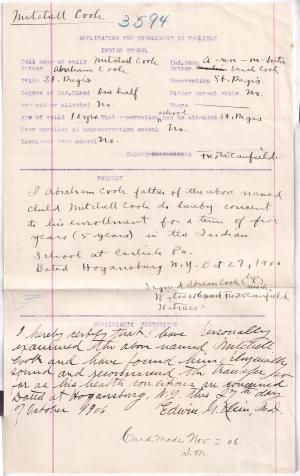 Mitchell Cook
3594
APPLICATION FOR ENROLLMENT IN CARLISLE
INDIAN SCHOOL
Full name of child Mitchell Cook Ind. Name
Father Abraham Cook Mother Sarah Cook
Tribe St. Regis Reservation St. Regis
Degree of Ind. Blood One half Either parent white No.
Are either allotted No. Where
Age of child 10 yrs. What reservation school has he attended St. Regis
Ever enrolled in nonreservation school No.
Excused from school No.
CONSENT
I Abraham Cook father of the above named
child Mitchell Cook do hereby consent
to his enrollment for a term of five
years (5 years) in the Indian
School at Carlisle Pa.
Dated Hogansburg N.Y. Oct 27, 1906
Signed Abram Cook (X)
Witness
PHYSICIAN'S CERTIFICATE
I hereby certify that I have personally
examined the above named Mitchell
Cook and have found him physically
sound and recommend the transfer so
far as his health conditions are concerned
Dated at Hogansburg, N.Y. this 27th day
of October 1906 Edwin G. Klein, M.D.
Card made Nov. 2. 06.
S.M.